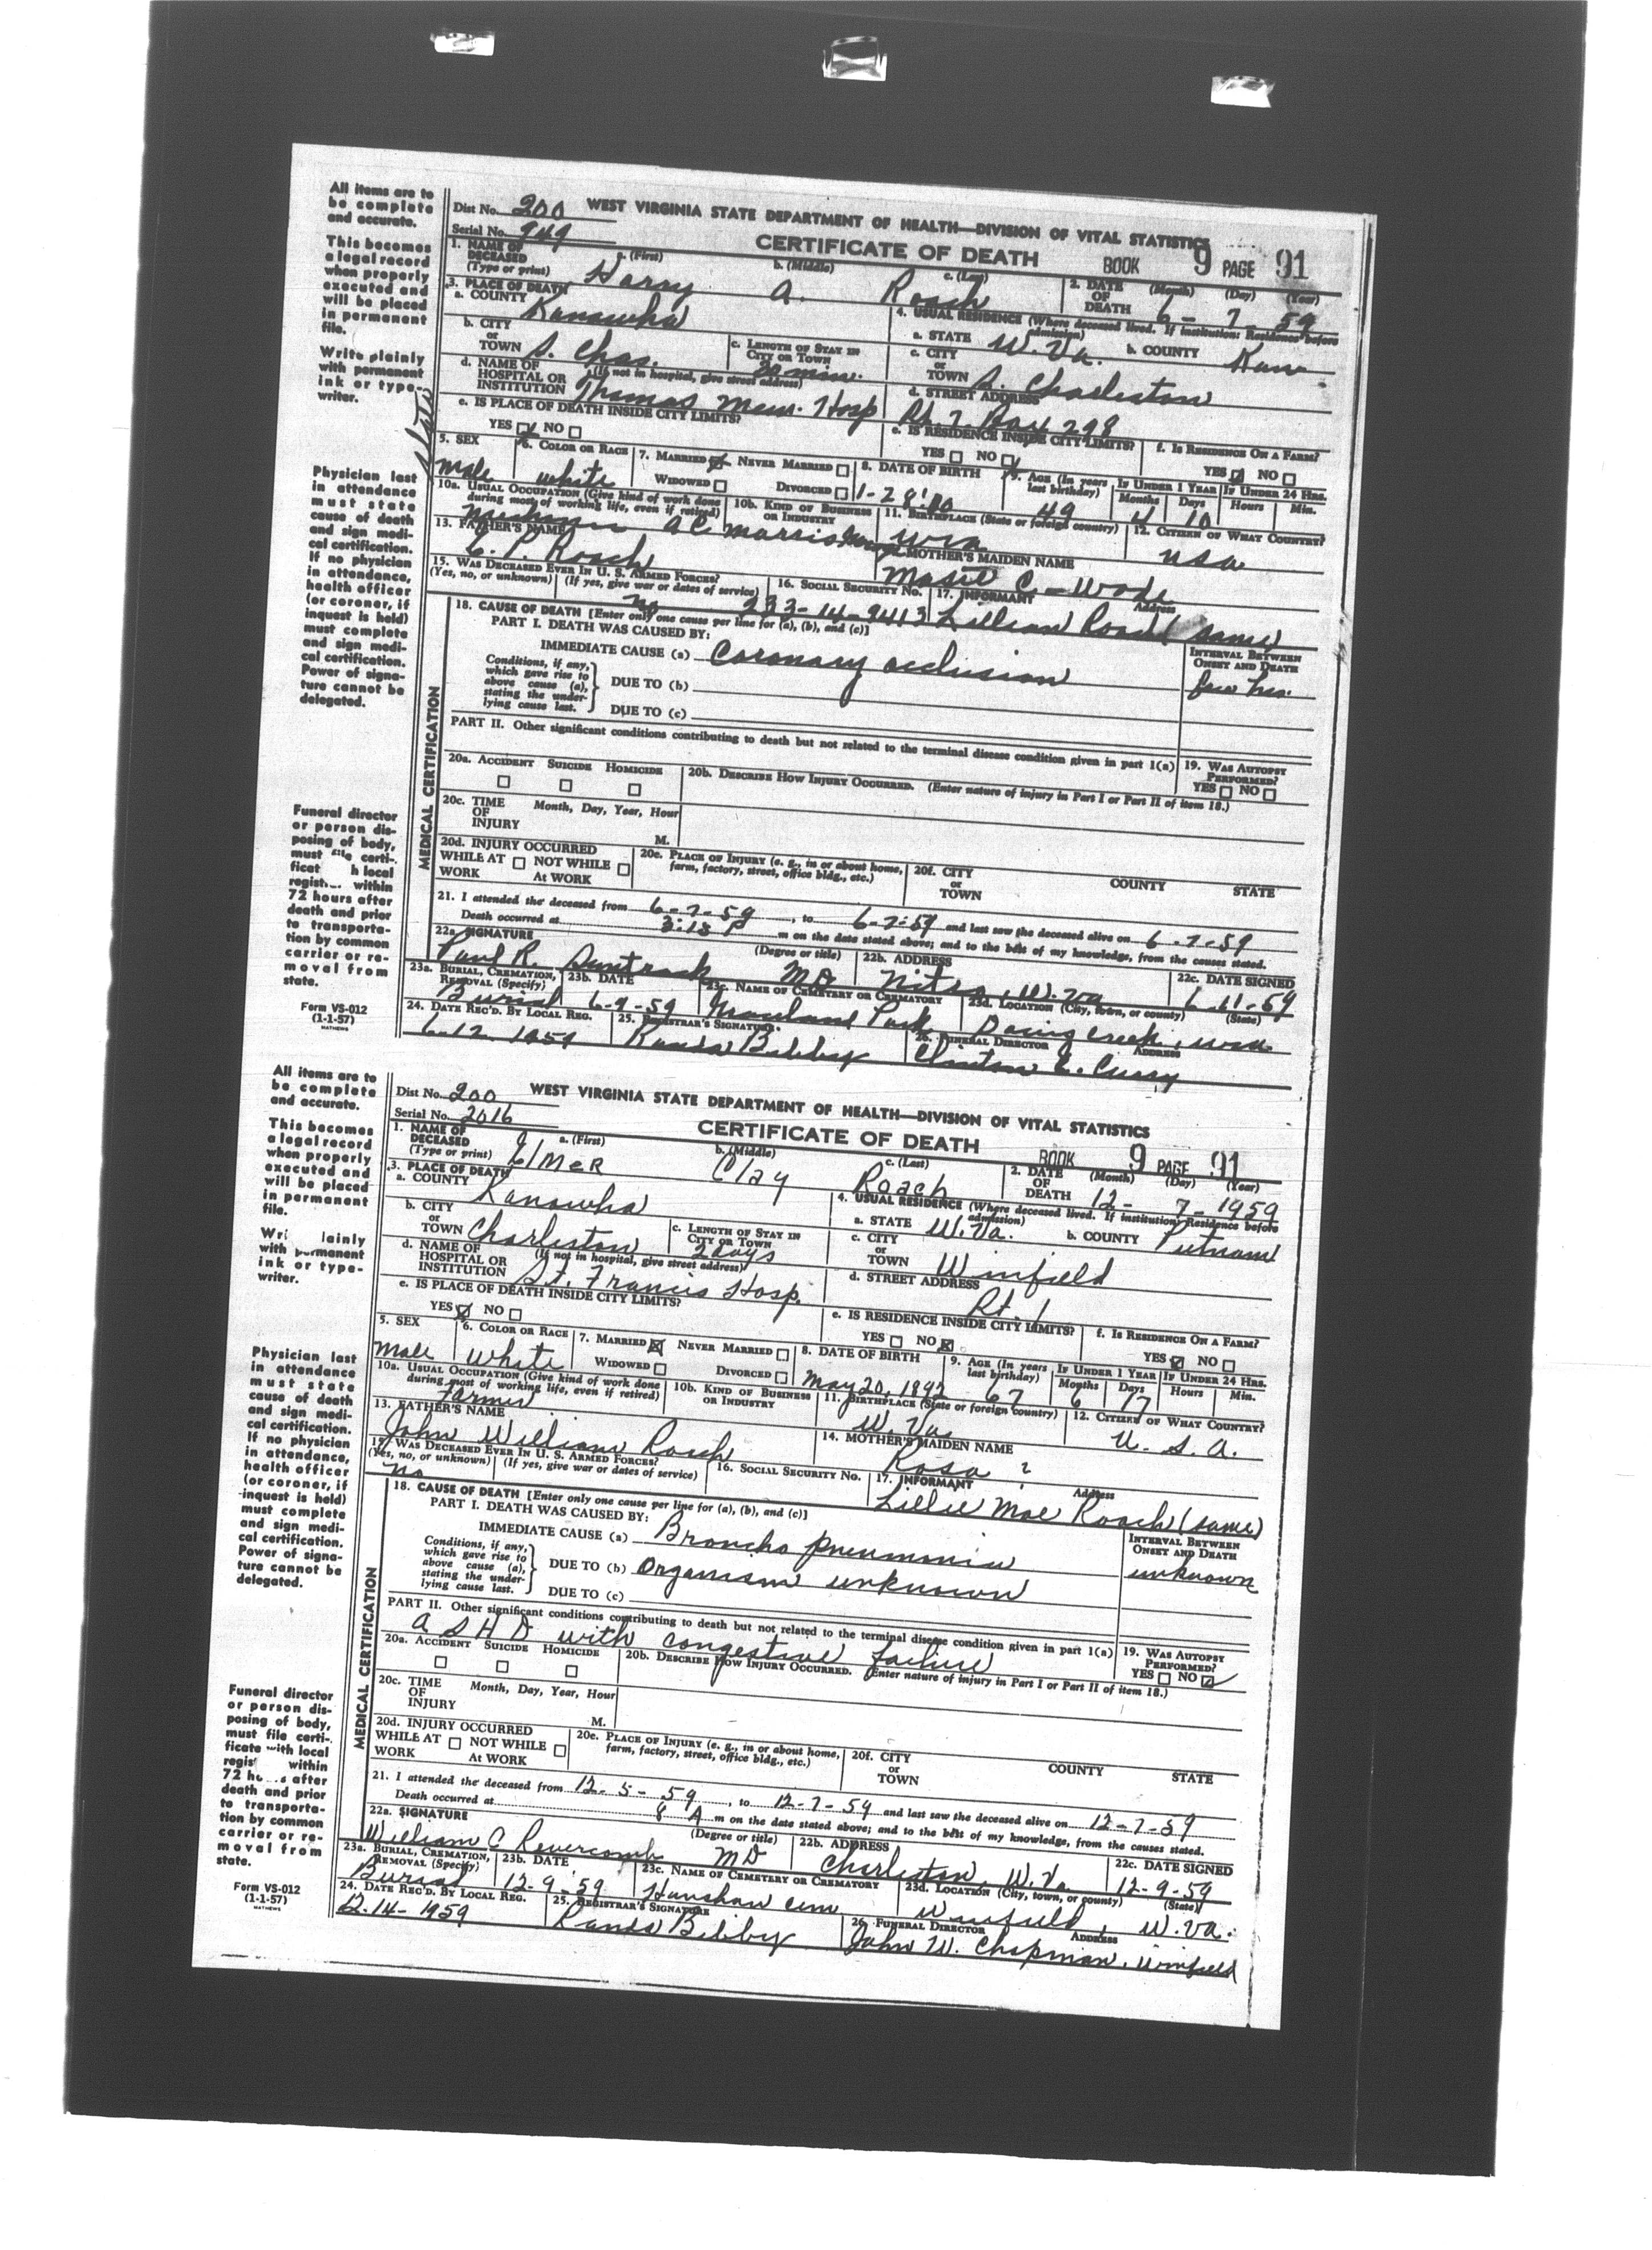 All items are to
be complete
and accurate.
This becomes
a legal record
when properly
executed and
will be placed
in permanent
file.
Write plainly
with permanent
ink or type-
writer.
Physician last
in attendance
must state
cause of death
and sign medi-
cal certification.
If no physician
in attendance,
health officer
(or coroner, if
inquest is held)
must complete
and sign medi-
cal certification.
Power of signa-
ture cannot be
delegated.
Funeral director
or person dis-
posing of body,
must file certi-
ficate with local
within
72 hours after
death and prior
to transporta-
tion by common
carrier or re-
moval from
state.
Form VS-012
(1-1-57)
MATHEWS
Dist No. 200 WEST VIRGINIA STATE DEPARTMENT OF HEALTH—DIVISION OF VITAL STATISTICS
Serial No. 949 CERTIFICATE OF DEATH BOOK 9 PAGE 91
1. NAME OF DECEASED (Type or print) a. (First) Harry b. (Middle) A. c. (Last) Roach 2. DATE OF DEATH (Month) (Day) (Year) 6 - 7 59
3. PLACE OF DEATH a. COUNTY Kanawha 4. USUAL RESIDENCE (Where deceased lived. If institution: Residence before admission)
a. STATE W. Va. b. COUNTY Kan
b. CITY or TOWN S. Chas. c. LENGTH OF STAY IN CITY OR TOWN 20 min. c. CITY or TOWN S. Charleston
d. NAME OF HOSPITAL OR INSTITUTION (If not in hospital, give street address) Thomas Mem. Hosp d. STREET ADDRESS Rt. 7. Box 298
e. IS PLACE OF DEATH INSIDE CITY LIMITS? YES NO e. IS RESIDENCE INSIDE CITY LIMITS? YES NO f. IS RESIDENCE ON A FARM? YES NO
5. SEX male 6. COLOR OR RACE white 7. MARRIED NEVER MARRIED WIDOWED DIVORCED 8. DATE OF BIRTH 9. AGE (In years last birthday) 49 IF UNDER 1 YEAR Months 4 Days 10 IF UNDER 24 HRS. Hours Min.
10a. USUAL OCCUPATION (Give kind of work done during most of working life, even if retired) 10b. KIND OF BUSINESS OR INDUSTRY 11. BIRTHPLACE (State or foreign country) 12. CITIZEN OF WHAT COUNTRY? USA
13. FATHER'S NAME C. P. Roach MOTHER'S MAIDEN NAME
15. WAS DECEASED EVER IN U. S. ARMED FORCES? (Yes, no, or unknown) (If yes, give war or dates of service) no 16. SOCIAL SECURITY No. 233-14-9413 17. INFORMANT Address Lillian Roach (same)
18. CAUSE OF DEATH [Enter only one cause per line for (a), (b), and (c)]
PART I. DEATH WAS CAUSED BY: INTERVAL BETWEEN ONSET AND DEATH
IMMEDIATE CAUSE (a) Coronary occlusion few hrs.
Conditions, if any, which gave rise to above cause (a), stating the underlying cause last. DUE TO (b)
DUE TO (c)
PART II. Other significant conditions contributing to death but not related to the terminal disease condition given in part 1(a) 19. WAS AUTOPSY PERFORMED? YES NO
20a. ACCIDENT SUICIDE HOMICIDE 20b. DESCRIBE HOW INJURY OCCURRED. (Enter nature of injury in Part I or Part II of item 18.)
20c. TIME OF INJURY Month, Day, Year, Hour M.
20d. INJURY OCCURRED WHILE AT WORK NOT WHILE AT WORK 20e. PLACE OF INJURY (e. g., in or about home, farm, factory, street, office bldg., etc.) 20f. CITY or TOWN COUNTY STATE
MEDICAL CERTIFICATION
21. I attended the deceased from 6-7-59, to 6-7-59 and last saw the deceased alive on 6-7-59
Death occurred at 3:15 P m on the date stated above; and to the best of my knowledge, from the causes stated.
22a. SIGNATURE Paul R. (Degree or title) MD 22b. ADDRESS Nitro, W. Va 22c. DATE SIGNED 6-11-59
23a. BURIAL, CREMATION, REMOVAL (Specify) Burial 23b. DATE 6-9-59 23c. NAME OF CEMETERY OR CREMATORY Park 23d. LOCATION (City, town, or county) (State)
24. DATE REC'D. BY LOCAL REG. 6-12 1959 25. REGISTRAR'S SIGNATURE Bibby 26. FUNERAL DIRECTOR ADDRESS Clinton E. Curry
All items are to
be complete
and accurate.
This becomes
a legal record
when properly
executed and
will be placed
in permanent
file.
with permanent
ink or type-
writer.
Physician last
in attendance
must state
cause of death
and sign medi-
cal certification.
If no physician
in attendance,
health officer
(or coroner, if
inquest is held)
must complete
and sign medi-
cal certification.
Power of signa-
ture cannot be
delegated.
Funeral director
or person dis-
posing of body,
must file certi-
ficate with local
within
72 hours after
death and prior
to transporta-
tion by common
carrier or re-
moval from
state.
Form VS-012
(1-1-57)
MATHEWS
Dist No. 200 WEST VIRGINIA STATE DEPARTMENT OF HEALTH—DIVISION OF VITAL STATISTICS
Serial No. 2016 CERTIFICATE OF DEATH BOOK 9 PAGE 91
1. NAME OF DECEASED (Type or print) a. (First) Elmer b. (Middle) Clay c. (Last) Roach 2. DATE OF DEATH (Month) (Day) (Year) 12- 7-1959
3. PLACE OF DEATH a. COUNTY Kanawha 4. USUAL RESIDENCE (Where deceased lived. If institution: Residence before admission)
a. STATE W. Va. b. COUNTY Putnam
b. CITY or TOWN Charleston c. LENGTH OF STAY IN CITY OR TOWN 2 days c. CITY or TOWN Winfield
d. NAME OF HOSPITAL OR INSTITUTION (If not in hospital, give street address) St. Francis Hosp. d. STREET ADDRESS Rt. 1
e. IS PLACE OF DEATH INSIDE CITY LIMITS? YES NO e. IS RESIDENCE INSIDE CITY LIMITS? YES NO f. IS RESIDENCE ON A FARM? YES NO
5. SEX Male 6. COLOR OR RACE White 7. MARRIED NEVER MARRIED WIDOWED DIVORCED 8. DATE OF BIRTH May 20, 1892 9. AGE (In years last birthday) 67 IF UNDER 1 YEAR Months 6 Days 17 IF UNDER 24 HRS. Hours Min.
10a. USUAL OCCUPATION (Give kind of work done during most of working life, even if retired) Farmer 10b. KIND OF BUSINESS OR INDUSTRY 11. BIRTHPLACE (State or foreign country) W. Va. 12. CITIZEN OF WHAT COUNTRY? U. S. A.
13. FATHER'S NAME John William Roach 14. MOTHER'S MAIDEN NAME Rosa ?
15. WAS DECEASED EVER IN U. S. ARMED FORCES? (Yes, no, or unknown) (If yes, give war or dates of service) no 16. SOCIAL SECURITY No. 17. INFORMANT Address Lillie Mae Roach (same)
18. CAUSE OF DEATH [Enter only one cause per line for (a), (b), and (c)]
PART I. DEATH WAS CAUSED BY: INTERVAL BETWEEN ONSET AND DEATH
IMMEDIATE CAUSE (a) Broncho pneumonia unknown
Conditions, if any, which gave rise to above cause (a), stating the underlying cause last. DUE TO (b) Organism unknown
DUE TO (c)
PART II. Other significant conditions contributing to death but not related to the terminal disease condition given in part 1(a) 19. WAS AUTOPSY PERFORMED? YES NO
A S H D with congestive failure
20a. ACCIDENT SUICIDE HOMICIDE 20b. DESCRIBE HOW INJURY OCCURRED. (Enter nature of injury in Part I or Part II of item 18.)
20c. TIME OF INJURY Month, Day, Year, Hour M.
20d. INJURY OCCURRED WHILE AT WORK NOT WHILE AT WORK 20e. PLACE OF INJURY (e. g., in or about home, farm, factory, street, office bldg., etc.) 20f. CITY or TOWN COUNTY STATE
MEDICAL CERTIFICATION
21. I attended the deceased from 12-5-59, to 12-7-59 and last saw the deceased alive on 12-7-59
Death occurred at 8 A m on the date stated above; and to the best of my knowledge, from the causes stated.
22a. SIGNATURE William C Revercomb (Degree or title) MD 22b. ADDRESS Charleston, W. Va. 22c. DATE SIGNED 12-9-59
23a. BURIAL, CREMATION, REMOVAL (Specify) Burial 23b. DATE 12-9-59 23c. NAME OF CEMETERY OR CREMATORY 23d. LOCATION (City, town, or county) (State) Winfield, W. Va.
24. DATE REC'D. BY LOCAL REG. 12-14-1959 25. REGISTRAR'S SIGNATURE Bibby 26. FUNERAL DIRECTOR ADDRESS John W. Chapman, Winfield